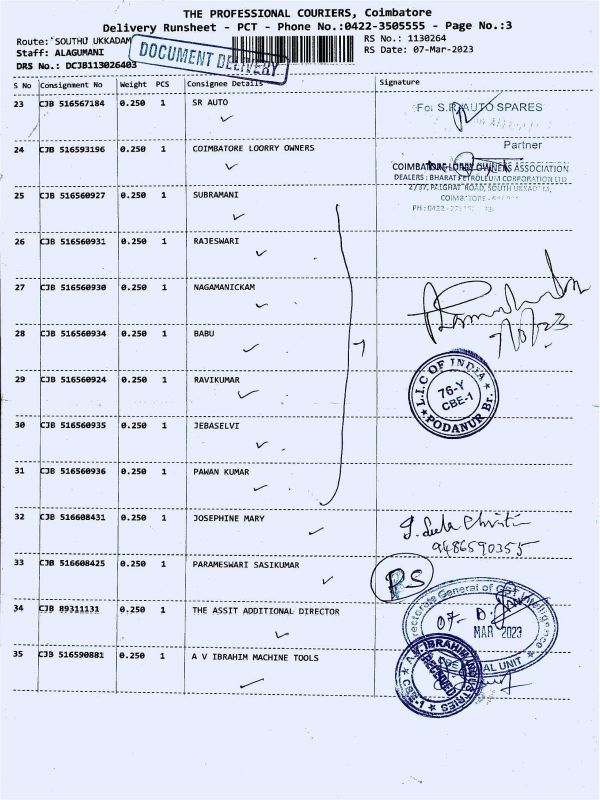 THE PROFESSIONAL COURIERS, Coimbatore
Delivery Runsheet - PCT - Phone No.:0422-3505555 - Page No.:3
Route: SOUTHU UKKADAM
RS No.: 1130264
Staff: ALAGUMANI
RS Date: 07-Mar-2023
DRS No.: DCJB113026403
DOCUMENT DELIVERY
S No Consignment No Weight PCS Consignee Details Signature
23 CJB 516567184 0.250 1 SR AUTO
For S.R. AUTO SPARES
Partner
24 CJB 516593196 0.250 1 COIMBATORE LOORRY OWNERS
COIMBATORE LORRY OWNERS ASSOCIATION
DEALERS : BHARAT PETROLEUM CORPORATION LTD
2/37, PALGHAT ROAD, SOUTH UKKADAM,
COIMBATORE
PH : 0422
25 CJB 516560927 0.250 1 SUBRAMANI
26 CJB 516560931 0.250 1 RAJESWARI
27 CJB 516560930 0.250 1 NAGAMANICKAM
28 CJB 516560934 0.250 1 BABU
7
29 CJB 516560924 0.250 1 RAVIKUMAR
L.I.C OF INDIA
76-Y
CBE-1
PODANUR Br.
30 CJB 516560935 0.250 1 JEBASELVI
31 CJB 516560936 0.250 1 PAWAN KUMAR
32 CJB 516608431 0.250 1 JOSEPHINE MARY
9486590355
33 CJB 516608425 0.250 1 PARAMESWARI SASIKUMAR
PS
34 CJB 89311131 0.250 1 THE ASSIT ADDITIONAL DIRECTOR
Directorate General of GST Intelligence
07-
MAR 2023
UNIT
35 CJB 516590881 0.250 1 A V IBRAHIM MACHINE TOOLS
A.V. IBRAHIM INDUSTRIES
CBE-1